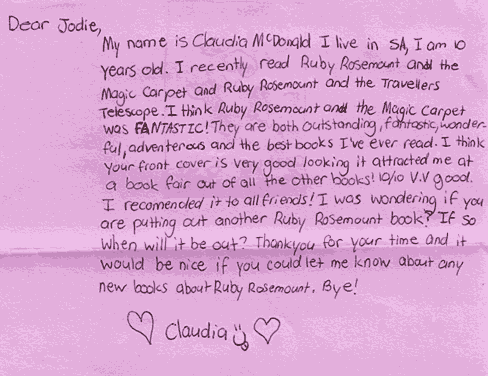 Dear Jodie,
My name is Claudia McDonald I live in SA, I am 10
years old. I recently read Ruby Rosemount and the
Magic Carpet and Ruby Rosemount and the Travellers
Telescope. I think Ruby Rosemount and the Magic Carpet
was FANTASTIC! They are both outstanding, fantastic, wonder-
ful, adventerous and the best books I've ever read. I think
your front cover is very good looking it attracted me at
a book fair out of all the other books! 10/10 V.V good.
I recomended it to all friends! I was wondering if you
are putting out another Ruby Rosemount book? If so
when will it be out? Thankyou for your time and it
would be nice if you could let me know about any
new books about Ruby Rosemount. Bye!
Claudia